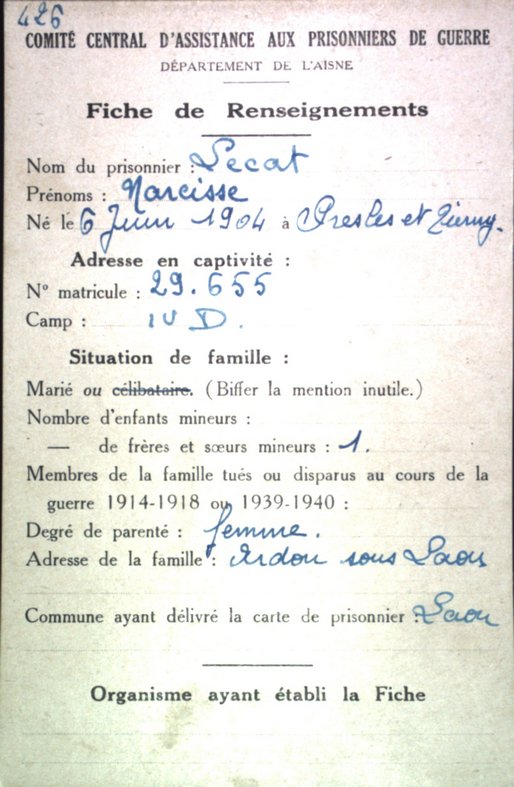 426
COMITÉ CENTRAL D'ASSISTANCE AUX PRISONNIERS DE GUERRE
DÉPARTEMENT DE L'AISNE
Fiche de Renseignements
Nom du prisonnier : Lecat
Prénoms : Narcisse
Né le 6 Juin 1904 à Presles et Thierny.
Adresse en captivité :
N° matricule : 29.655
Camp : IV D.
Situation de famille :
Marié ou célibataire. (Biffer la mention inutile.)
Nombre d'enfants mineurs :
— de frères et sœurs mineurs : 1.
Membres de la famille tués ou disparus au cours de la
guerre 1914-1918 ou 1939-1940 :
Degré de parenté : femme.
Adresse de la famille : Ardon sous Laon
Commune ayant délivré la carte de prisonnier : Laon
Organisme ayant établi la Fiche